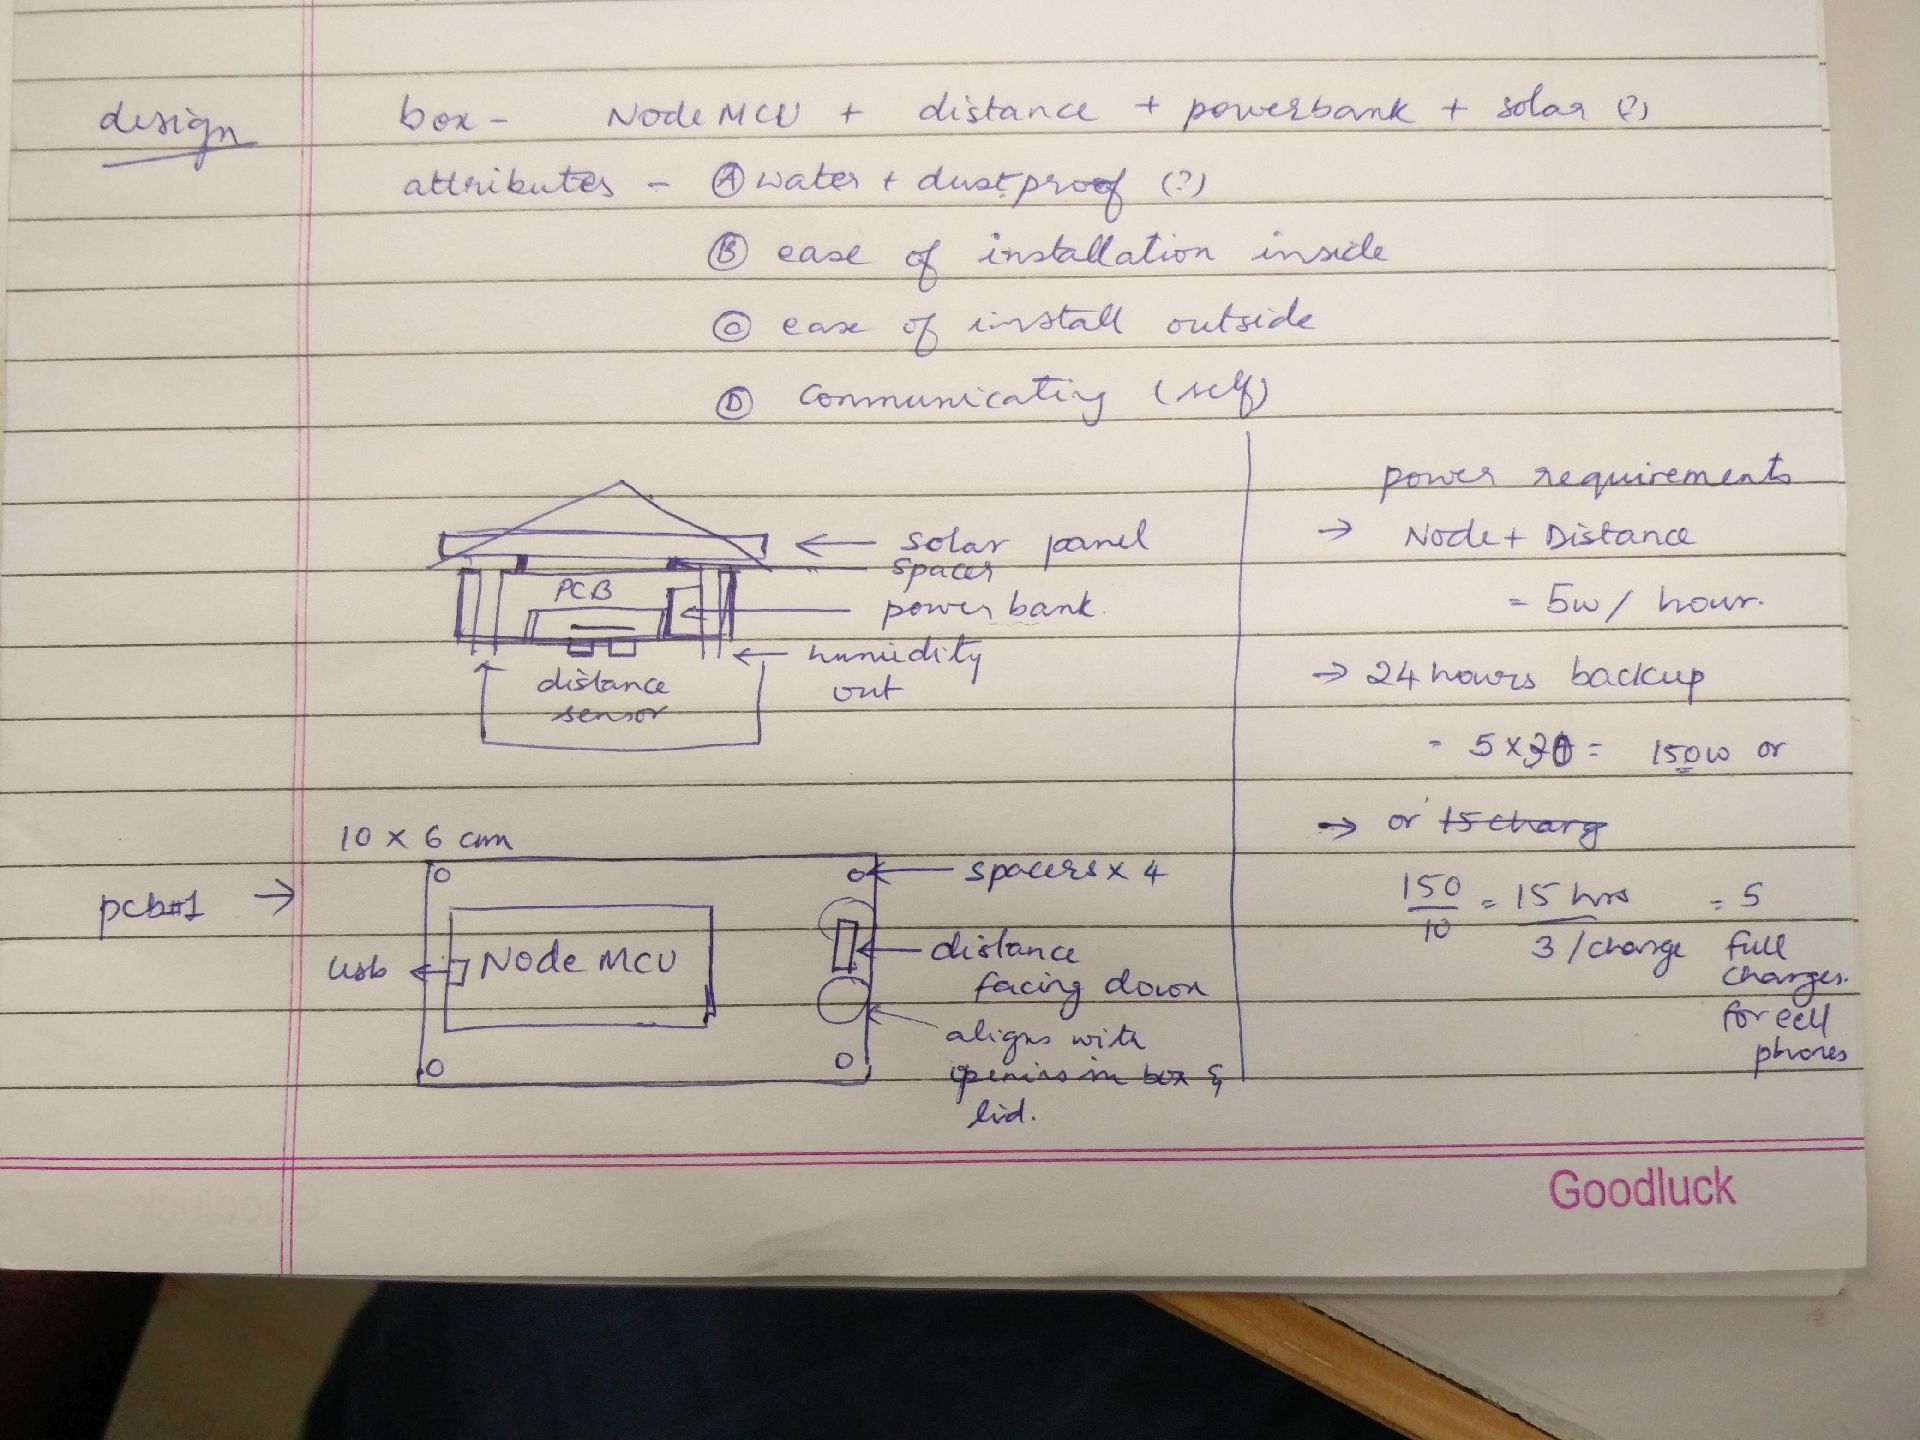 design
box - NodeMCU + distance + powerbank + solar (?)
attributes - Ⓐ water + dustproof (?)
Ⓑ ease of installation inside
Ⓒ ease of install outside
Ⓓ Communicating (self)
solar panel
spacer
PCB
power bank.
humidity
out
distance
sensor
power requirements
→ Node + Distance
= 5w / hour.
→ 24 hours backup
= 5 x 30 = 150w or
→ or 15 charg
150
10
= 15 hrs
3 / charge
= 5
full
charges.
for cell
phones
10 x 6 cm
pcb#1 →
usb
Node MCU
spacers x 4
distance
facing down
aligns with
box &
lid.
Goodluck